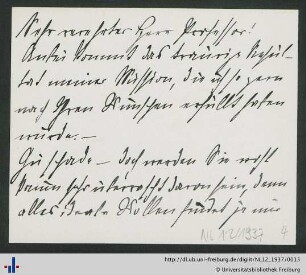 Sehr verehrter Herr Professor!
Anbei kommt das traurige Resul-
tat meiner Mission, die ich so gern
nach Ihren Wünschen erfüllt haben
würde. —
Zu schade — doch werden Sie wohl
kaum sehr überrascht davon sein, denn
alles ideale Wollen findet ja nur
NL 12/1937 4
http://dl.ub.uni-freiburg.de/diglit/NL12_1937/0013
© Universitätsbibliothek Freiburg